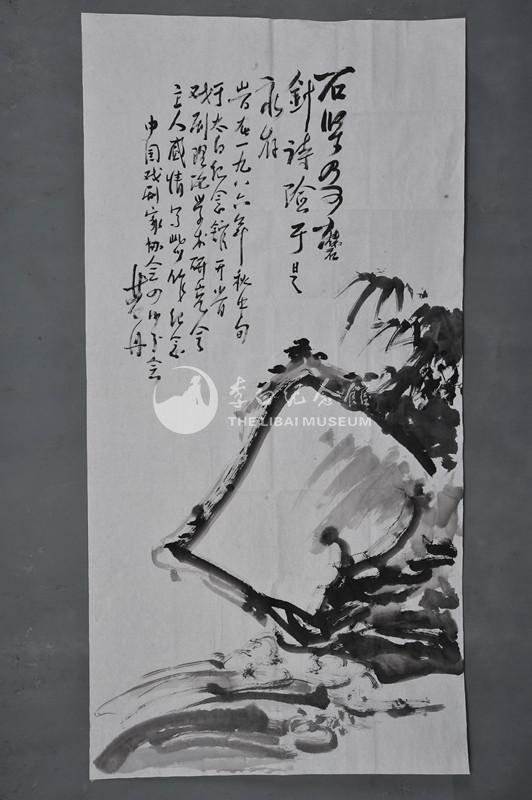 石坚可磨
针诗险于是
永存
岁在一九八六年秋出旬
于太白纪念馆开省
戏剧理论学术研究会
主人感情写此作纪念
中国戏剧家协会四川分会
丹
李白纪念馆
THE LIBAI MUSEUM